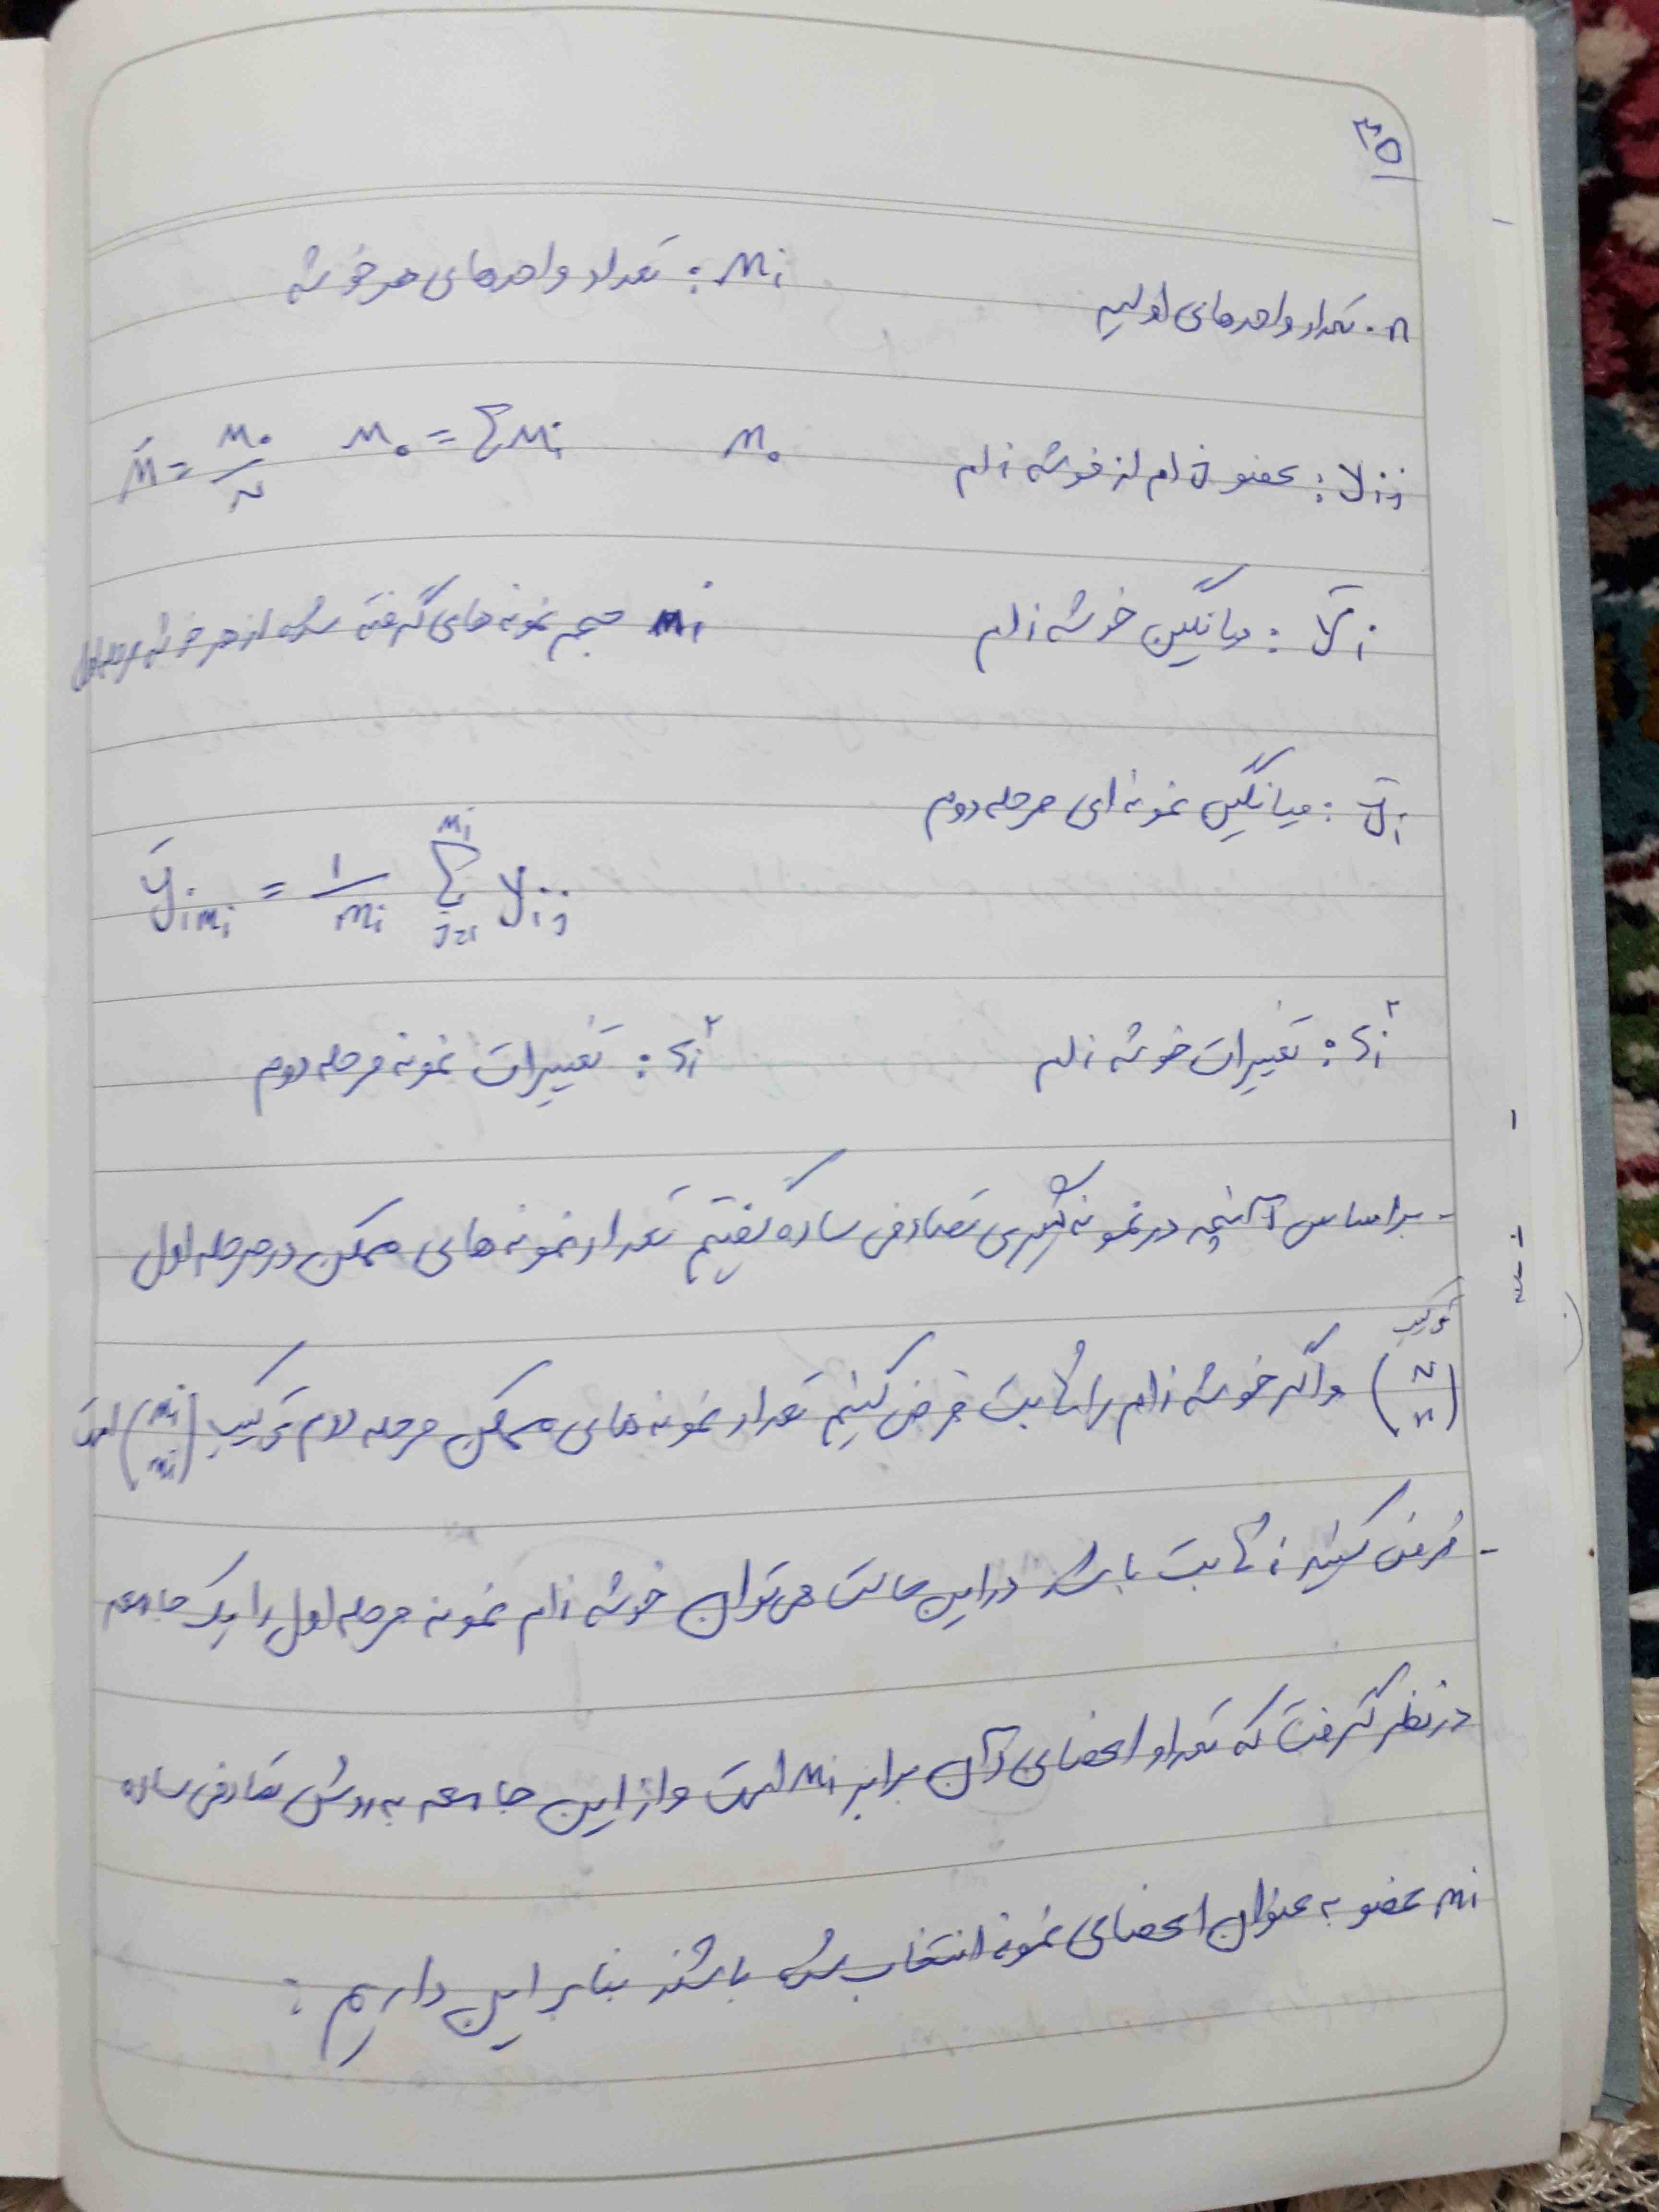 ۳۵
n: تعداد واحدهای اولیه    Mi: تعداد واحدهای هر خوشه
yij: عضو j ام از خوشه i ام    M₀    M₀ = ΣMi    M̄ = M₀/N
Ȳi: میانگین خوشه i ام    mi حجم نمونه‌های گرفته شده از هر خوشه
ȳi: میانگین نمونه‌ای مرحله دوم
ȳimi = 1/mi Σ_{j=1}^{mi} yij
Si²: تغییرات خوشه i ام    si²: تغییرات نمونه مرحله دوم
- براساس آنچه در نمونه گیری تصادفی ساده گفتیم تعداد نمونه های ممکن در مرحله اول
ترکیب
(N n) و اگر خوشه i ام را ثابت فرض کنیم تعداد نمونه های ممکن مرحله دوم ترکیب (Mi mi) است
- فرض کنید i ثابت باشد در این حالت می توان خوشه i ام نمونه مرحله اول را یک جامعه
در نظر گرفت که تعداد اعضای آن برابر Mi است و از این جامعه به روش تصادفی ساده
mi عضو به عنوان اعضای نمونه انتخاب شده باشند بنابراین داریم: